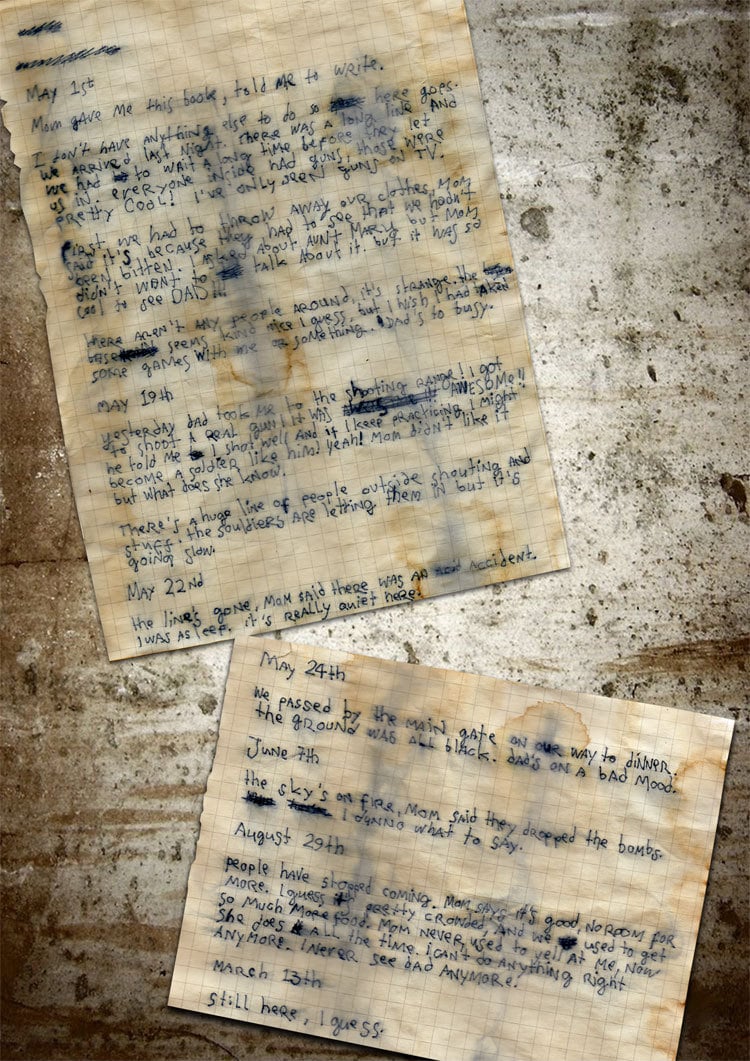 May 1st
Mom gave me this book, told me to write.
I don't have anything else to do so here goes.
We arrived last night. There was a long line and
we had to wait a long time before they let
us in. everyone inside had guns, those were
pretty cool! I've only seen guns on TV.
First we had to throw away our clothes, Mom
said it's because they had to see that we hadn't
been bitten. I asked about aunt Mary but Mom
didn't want to talk about it. but it was so
cool to see DAD!!!
there aren't any people around, it's strange. the
base seems kind nice I guess. but I wish I had taken
some games with me or something. Dad's to busy.
May 19th
yesterday dad took me to the shooting range! I got
to shoot a real gun! it was AWESOME!!
he told me I shot well and if I keep practicing I might
become a soldier like him! yeah! Mom didn't like it
but what does she know.
There's a huge line of people outside shouting and
stuff. the souldiers are letting them in but it's
going slow.
May 22nd
the line's gone, Mom said there was an accident.
I was asleep. it's really quiet here.
May 24th
we passed by the main gate on our way to dinner.
the ground was all black. dad's on a bad mood.
June 7th
the sky's on fire, Mom said they dropped the bombs.
I dunno what to say.
August 29th
people have stopped coming. Mom says it's good, no room for
more. I guess pretty crowded. And we used to get
so much more food. Mom never used to yell at me, now
she does all the time. I can't do anything right
anymore. I never see dad anymore!
March 13th
still here, I guess.